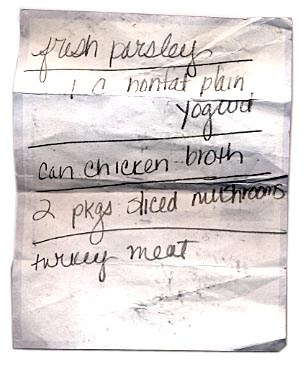 fresh parsley
1 C nonfat plain
yogurt
can chicken broth
2 pkgs sliced mushrooms
turkey meat